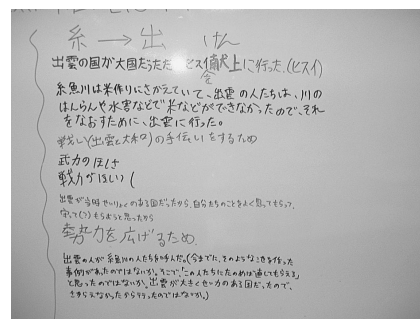 糸 → 出 けん
出雲の国が大国だった ヒスイ献上に行った。(ヒスイ)
糸魚川は米作りにさかえていて、出雲の人たちは、川の
はんらんや水害などで米などができなかったので、それ
をなおすために、出雲に行った。
戦い(出雲と大和)の手伝いをするため
武力のほしさ
戦力がほしい(
出雲が当時せいりょくのある国だったから、自分たちのことをよく思ってもらって、
守って(?)もらおうと思ったから
勢力を広げるため。
出雲の人が糸魚川の人たちを呼んだ。(今までに、そのようなことを行った
事例があったのではないか。そこで、「この人たちにたのめば直してもらえる」
と思ったのではないか。出雲が大きくセ力のある国だったので、
さからえなかったから行ったのではないか。)